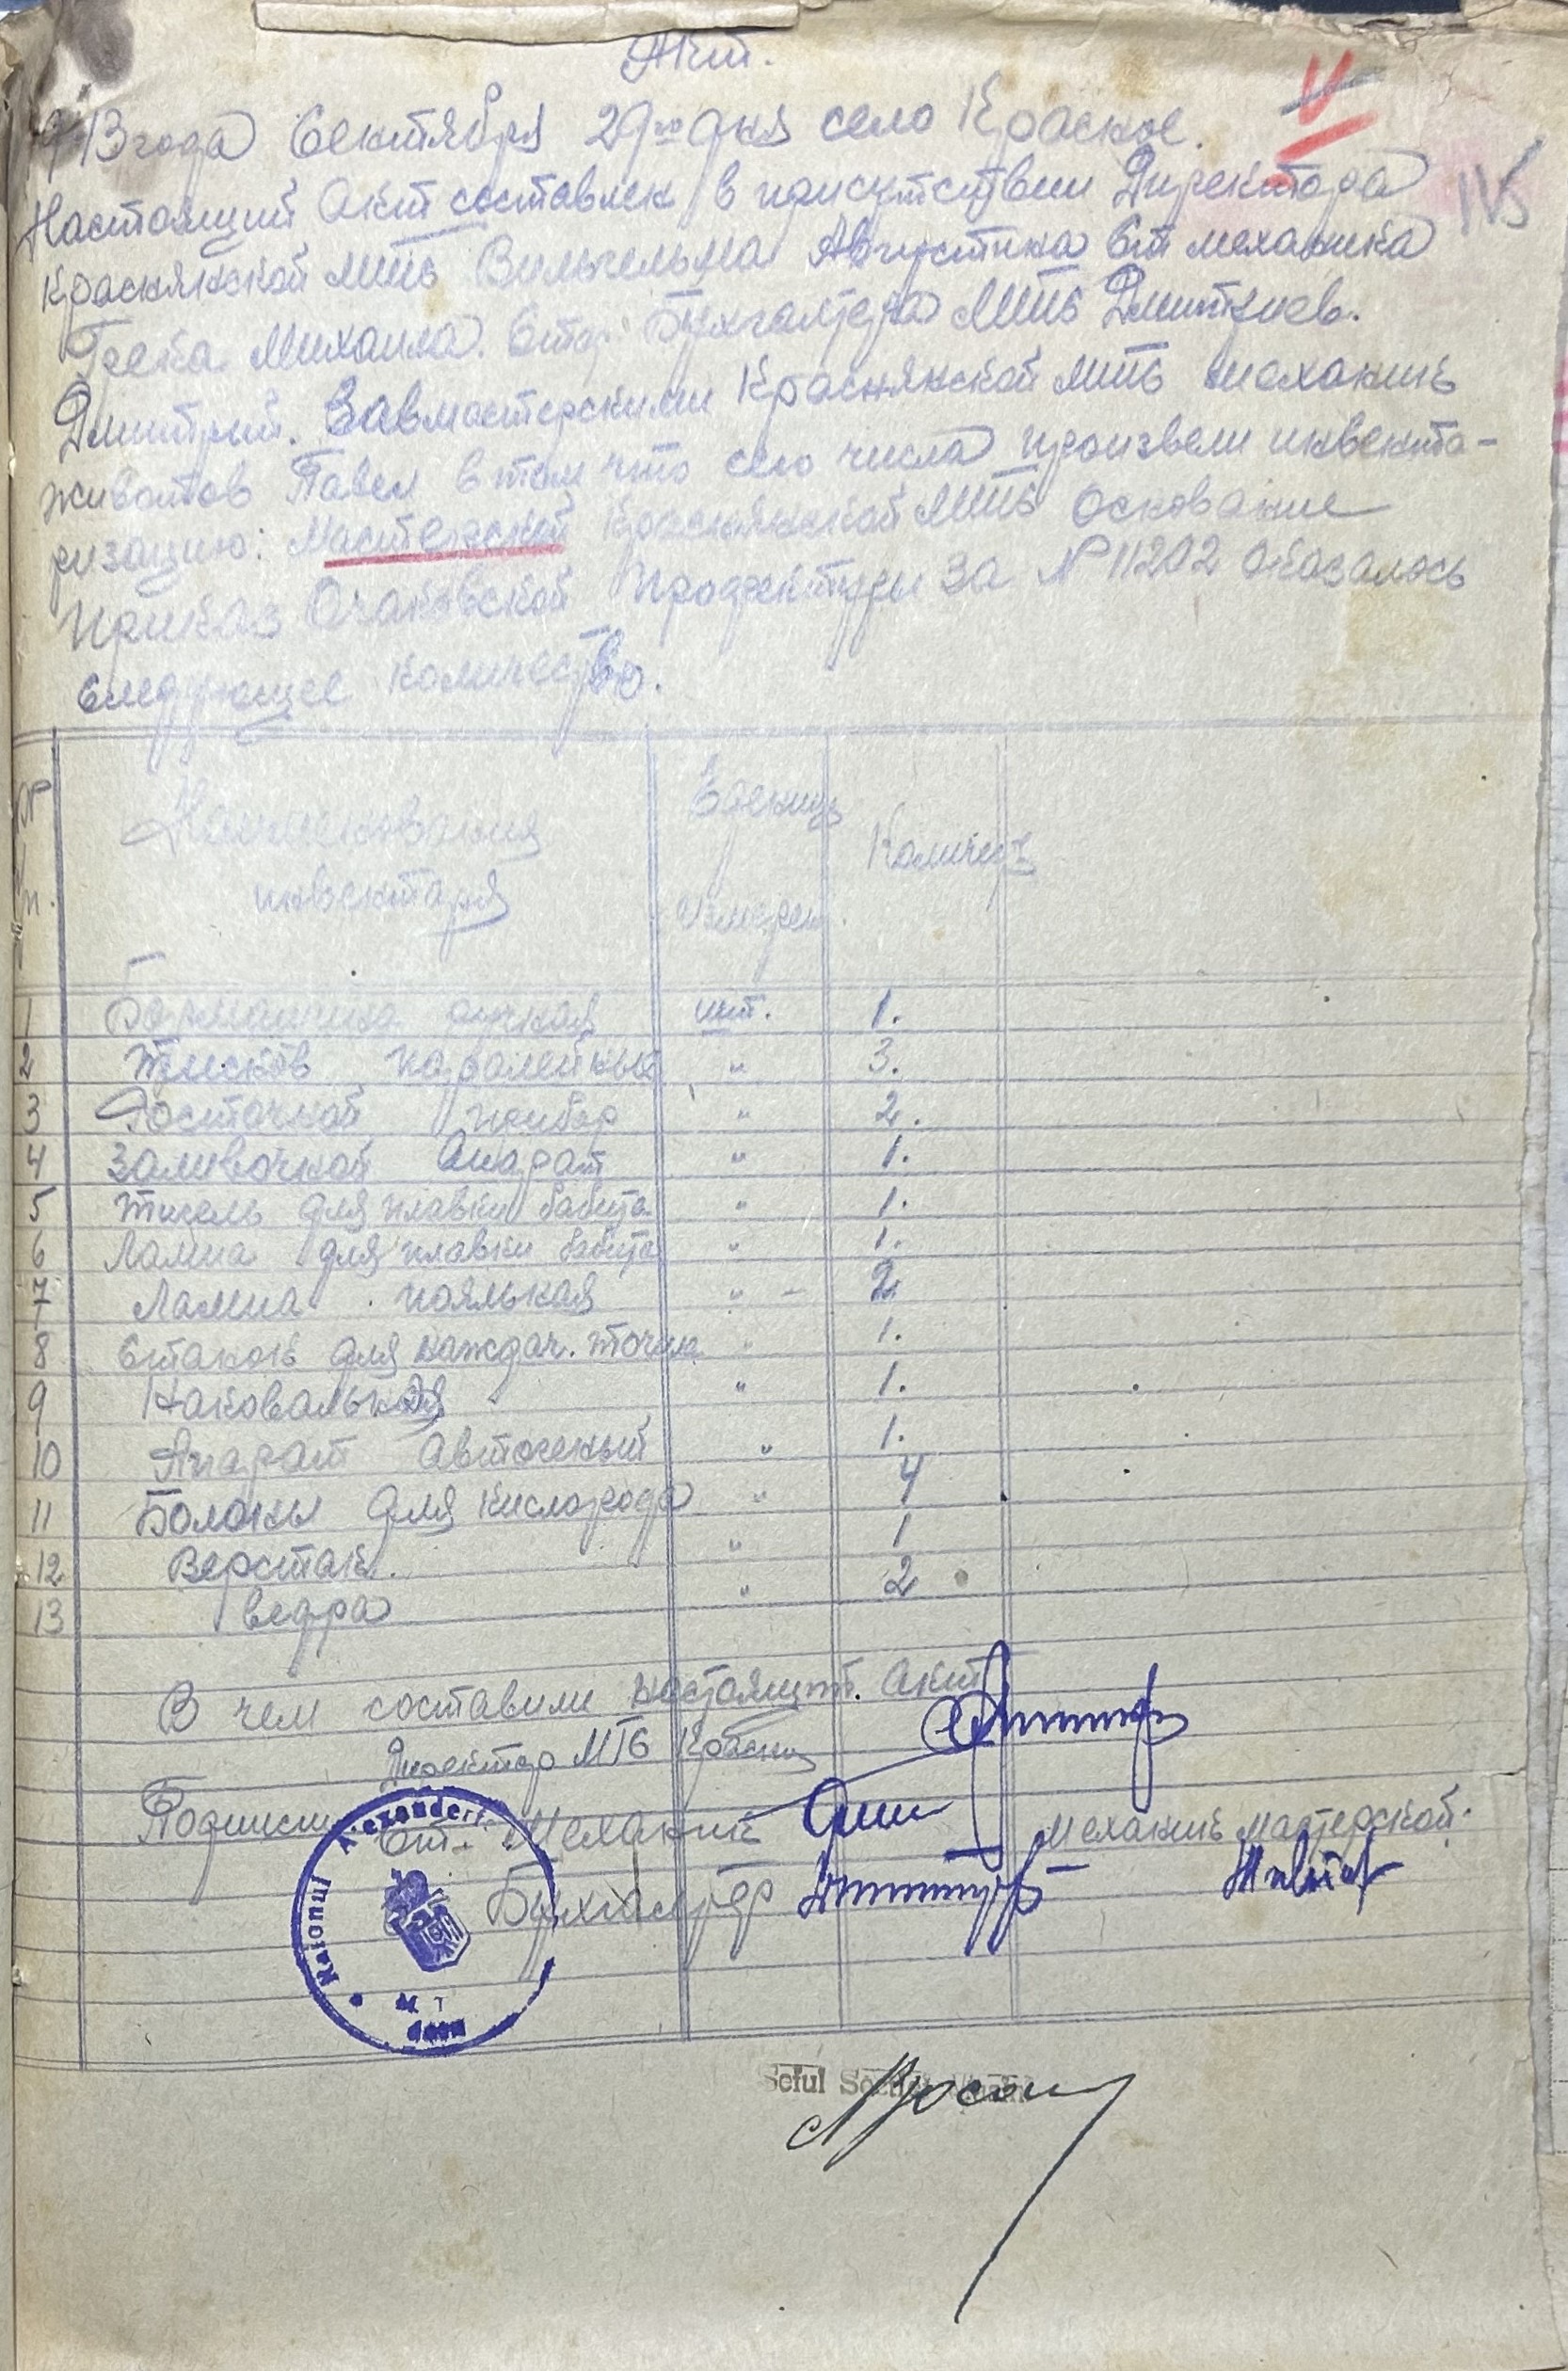 Акт.
1943 года Сентября 29го дня село Красное.
115
Настоящий Акт составлен в присутствии Директора
Краснянской МТС Вильгельма Августина Ст механика
Грека Михаила. Стар. Бухгалтера МТС Дмитриев.
Дмитрий. Завмастерскими Краснянской МТС механикъ
Животов Павел в том что сего числа произвели инвента-
ризацию: Мастерской Краснянской МТС Основание
приказ Очаковской Префектуры за № 11202 Оказалось
Следующее количество.
№ п. Наименования инвентаря Едениц Измерен. Количест
1 Бормашина ручная шт. 1.
2 Тисков паралейных " 3.
3 Росточной прибор " 2.
4 Заливочной Апарат " 1.
5 Тигель для плавки бабита " 1.
6 Лампа для плавки бабита " 1.
7 Лампа паяльная " - 2
8 Станокъ для наждач. точила " 1.
9 Наковальная " 1.
10 Апарат Автогеный " 1.
11 Балоны для кислорода " 4
12 Верстак. " 1
13 ведра " 2
В чем составили настоящий. Акт
Директор МТС
Подписи Ст. Механик
Механикъ мастерской.
Бухгалтер
Raionul
Seful